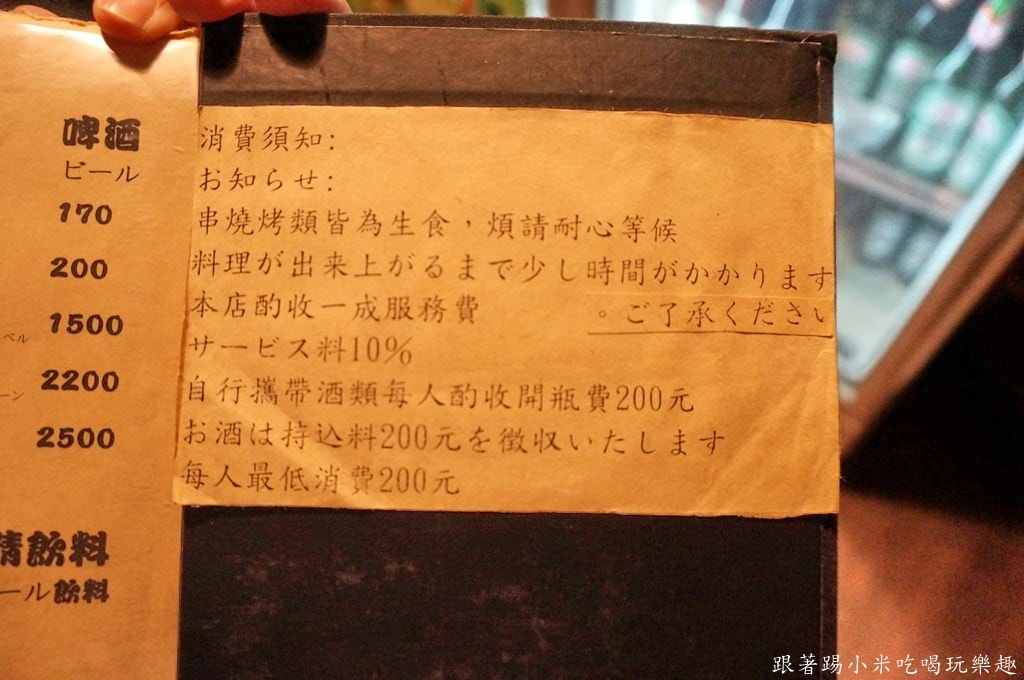 啤酒
ビール
170
200
1500
ベル
2200
ーン
2500
飲料
ール飲料
消費須知:
お知らせ:
串燒烤類皆為生食,煩請耐心等候
料理が出来上がるまで少し時間がかかります
。ご了承ください
本店酌收一成服務費
サービス料10%
自行攜帶酒類每人酌收開瓶費200元
お酒は持込料200元を徴収いたします
每人最低消費200元
跟著踢小米吃喝玩樂趣